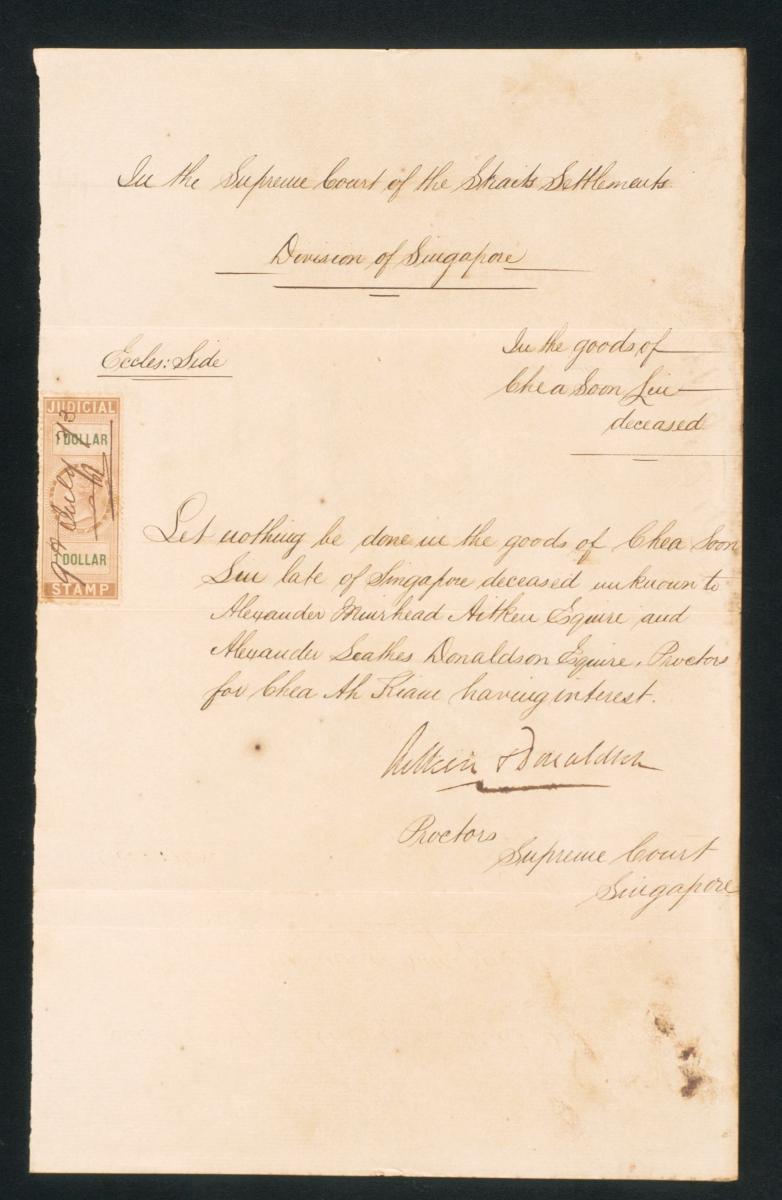 In the Supreme Court of the Straits Settlements
Division of Singapore
Eccles: Side
In the goods of
Chea Soon Lin
deceased
JUDICIAL
1 DOLLAR
9th July 73
DOLLAR
STAMP
Let nothing be done in the goods of Chea Soon
Lin late of Singapore deceased unknown to
Alexander Muirhead Aitken Esquire and
Alexander Leathes Donaldson Esquire, Proctors
for Chea Ah Kiam having interest.
Aitken & Donaldson
Proctors
Supreme Court
Singapore